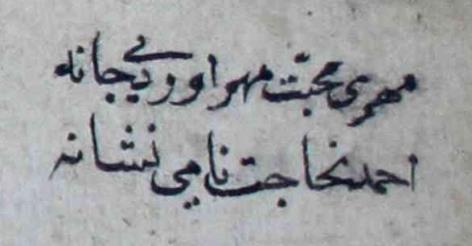 مهری محبّت مهر اوردی جانه
احمد نامی نشانه